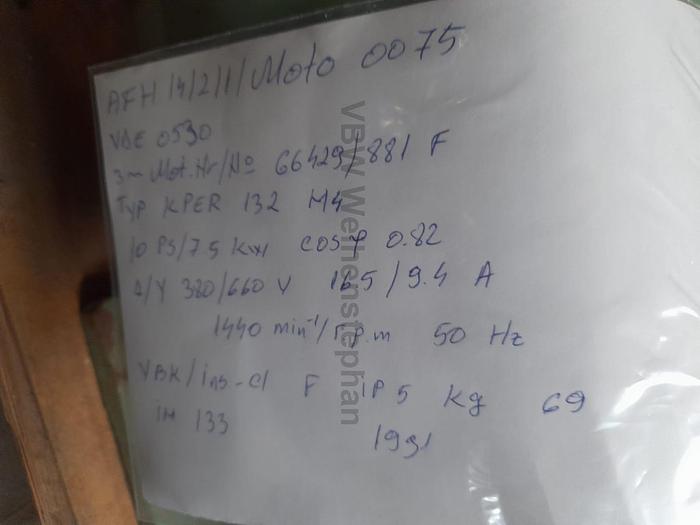 AFH 14/2/1/Moto 0075
VDE 0530
3~ Mot.Nr/No 66429/881 F
Typ KPER 132 M4
10 PS/7.5 KW cosφ 0.82
Δ/Y 380/660 V 16.5/9.4 A
1440 min⁻¹/r.p.m 50 Hz
VBK/ins-Cl F IP 5 Kg 69
IM 133
1991
VBW Weihenstephan